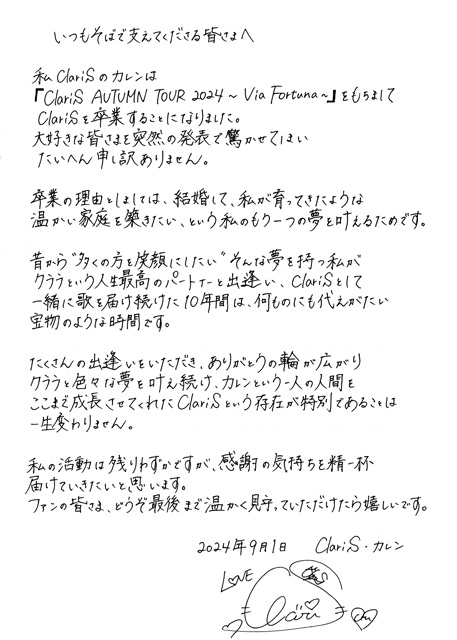 いつもそばで支えてくださる皆さまへ
私 ClariS の カレンは
『ClariS AUTUMN TOUR 2024 ~ Via Fortuna ~』をもちまして
ClariSを卒業することになりました。
大好きな皆さまを突然の発表で驚かせてしまい
たいへん申し訳ありません。
卒業の理由としましては、結婚して、私が育ってきたような
温かい家庭を築きたい、という私のもう一つの夢を叶えるためです。
昔から"多くの方を笑顔にしたい"そんな夢を持つ私が
クララという人生最高のパートナーと出逢い、ClariSとして
一緒に歌を届け続けた10年間は、何ものにも代えがたい
宝物のような時間です。
たくさんの出逢いをいただき、ありがとうの輪が広がり
クララと色々な夢を叶え続け、カレンという一人の人間を
ここまで成長させてくれたClariSという存在が特別であることは
一生変わりません。
私の活動は残りわずかですが、感謝の気持ちを精一杯
届けていきたいと思います。
ファンの皆さま、どうぞ最後まで温かく見守っていただけたら嬉しいです。
2024年9月1日 ClariS・カレン
LOVE